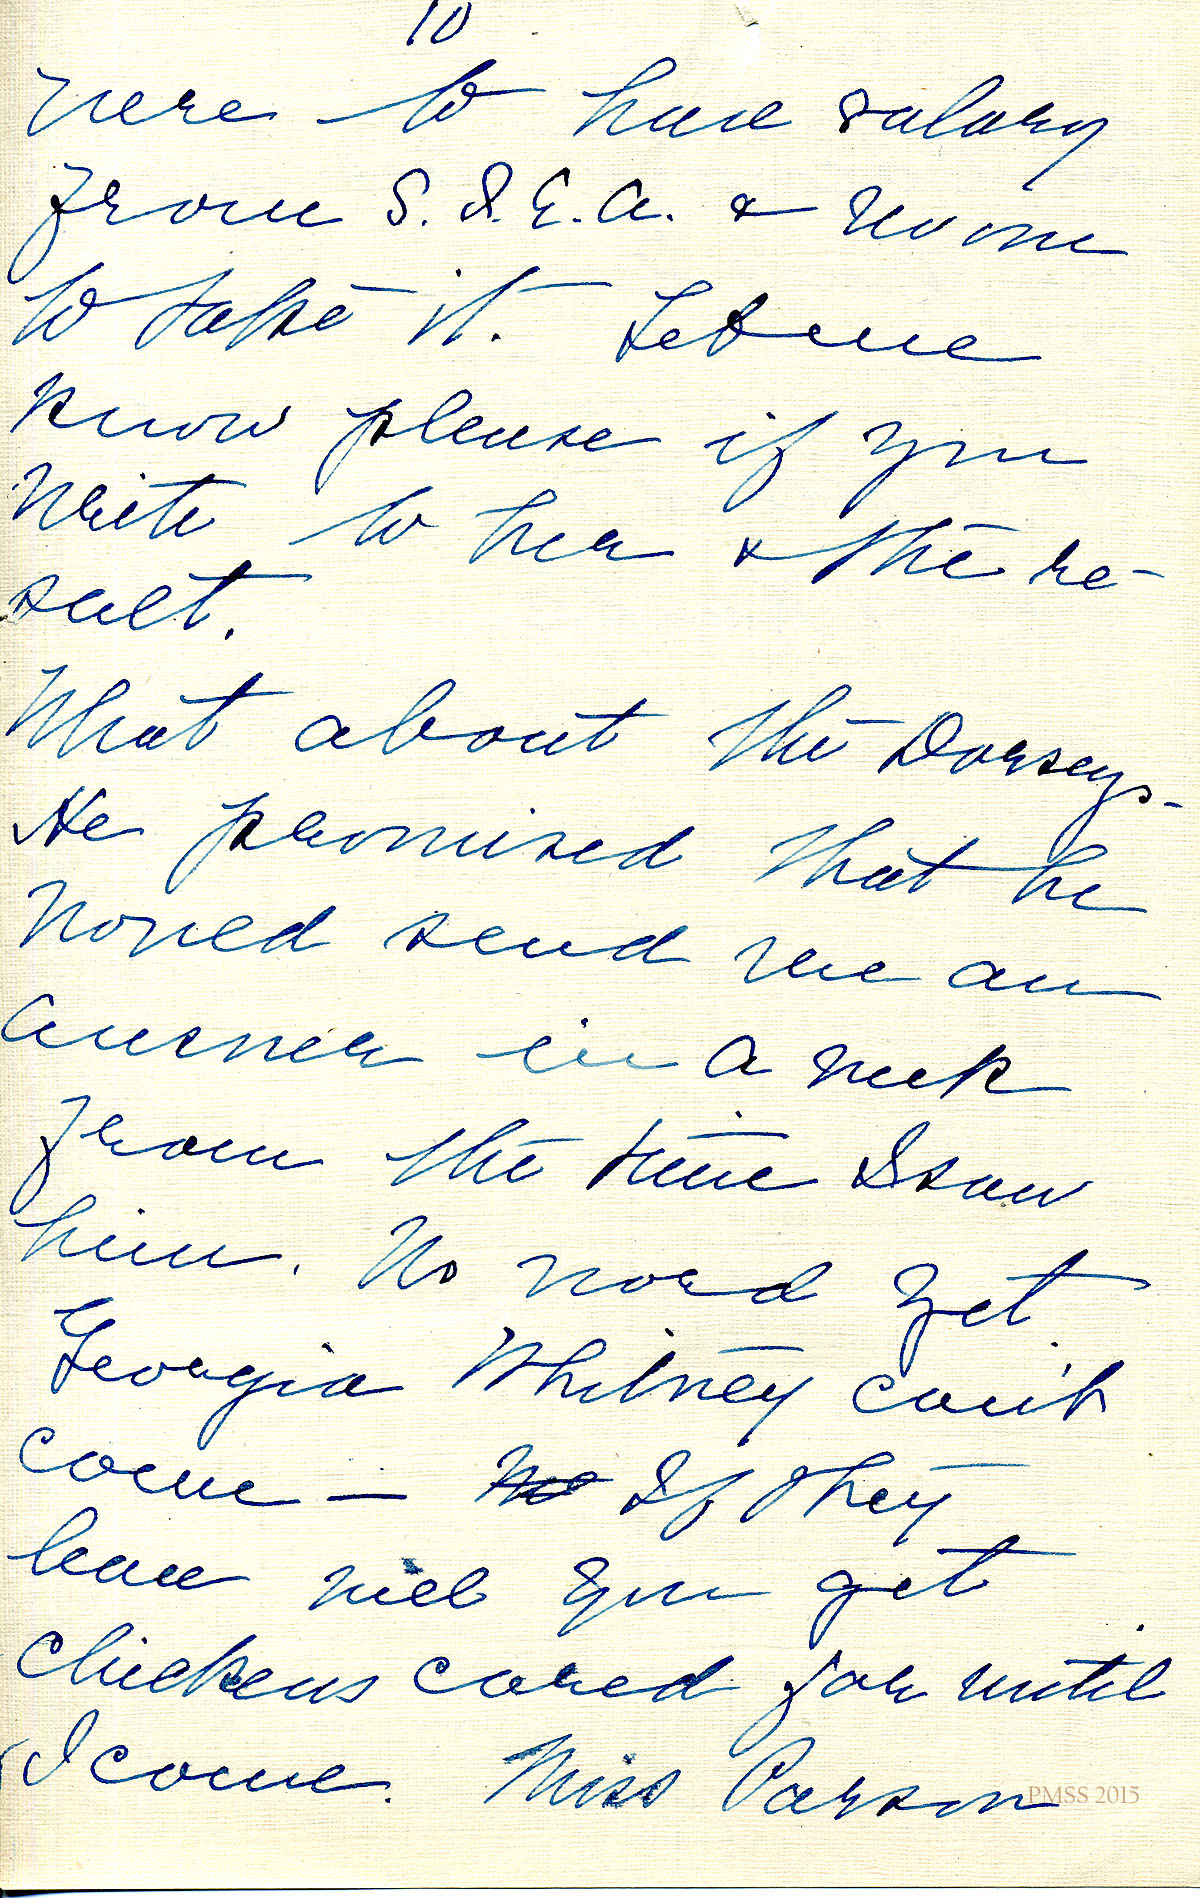 10
were to have salary
from S. I. E. A. & no one
to take it. Let me
know please if you
write to her & the re-
sult.
What about the Dorseys-
He promised that he
would send me an
answer in a week
from the time I saw
him. No word yet
Georgia Whitney can't
come — No If they
leave will you get
chickens cared for until
I come. Miss Parson
PMSS 2015